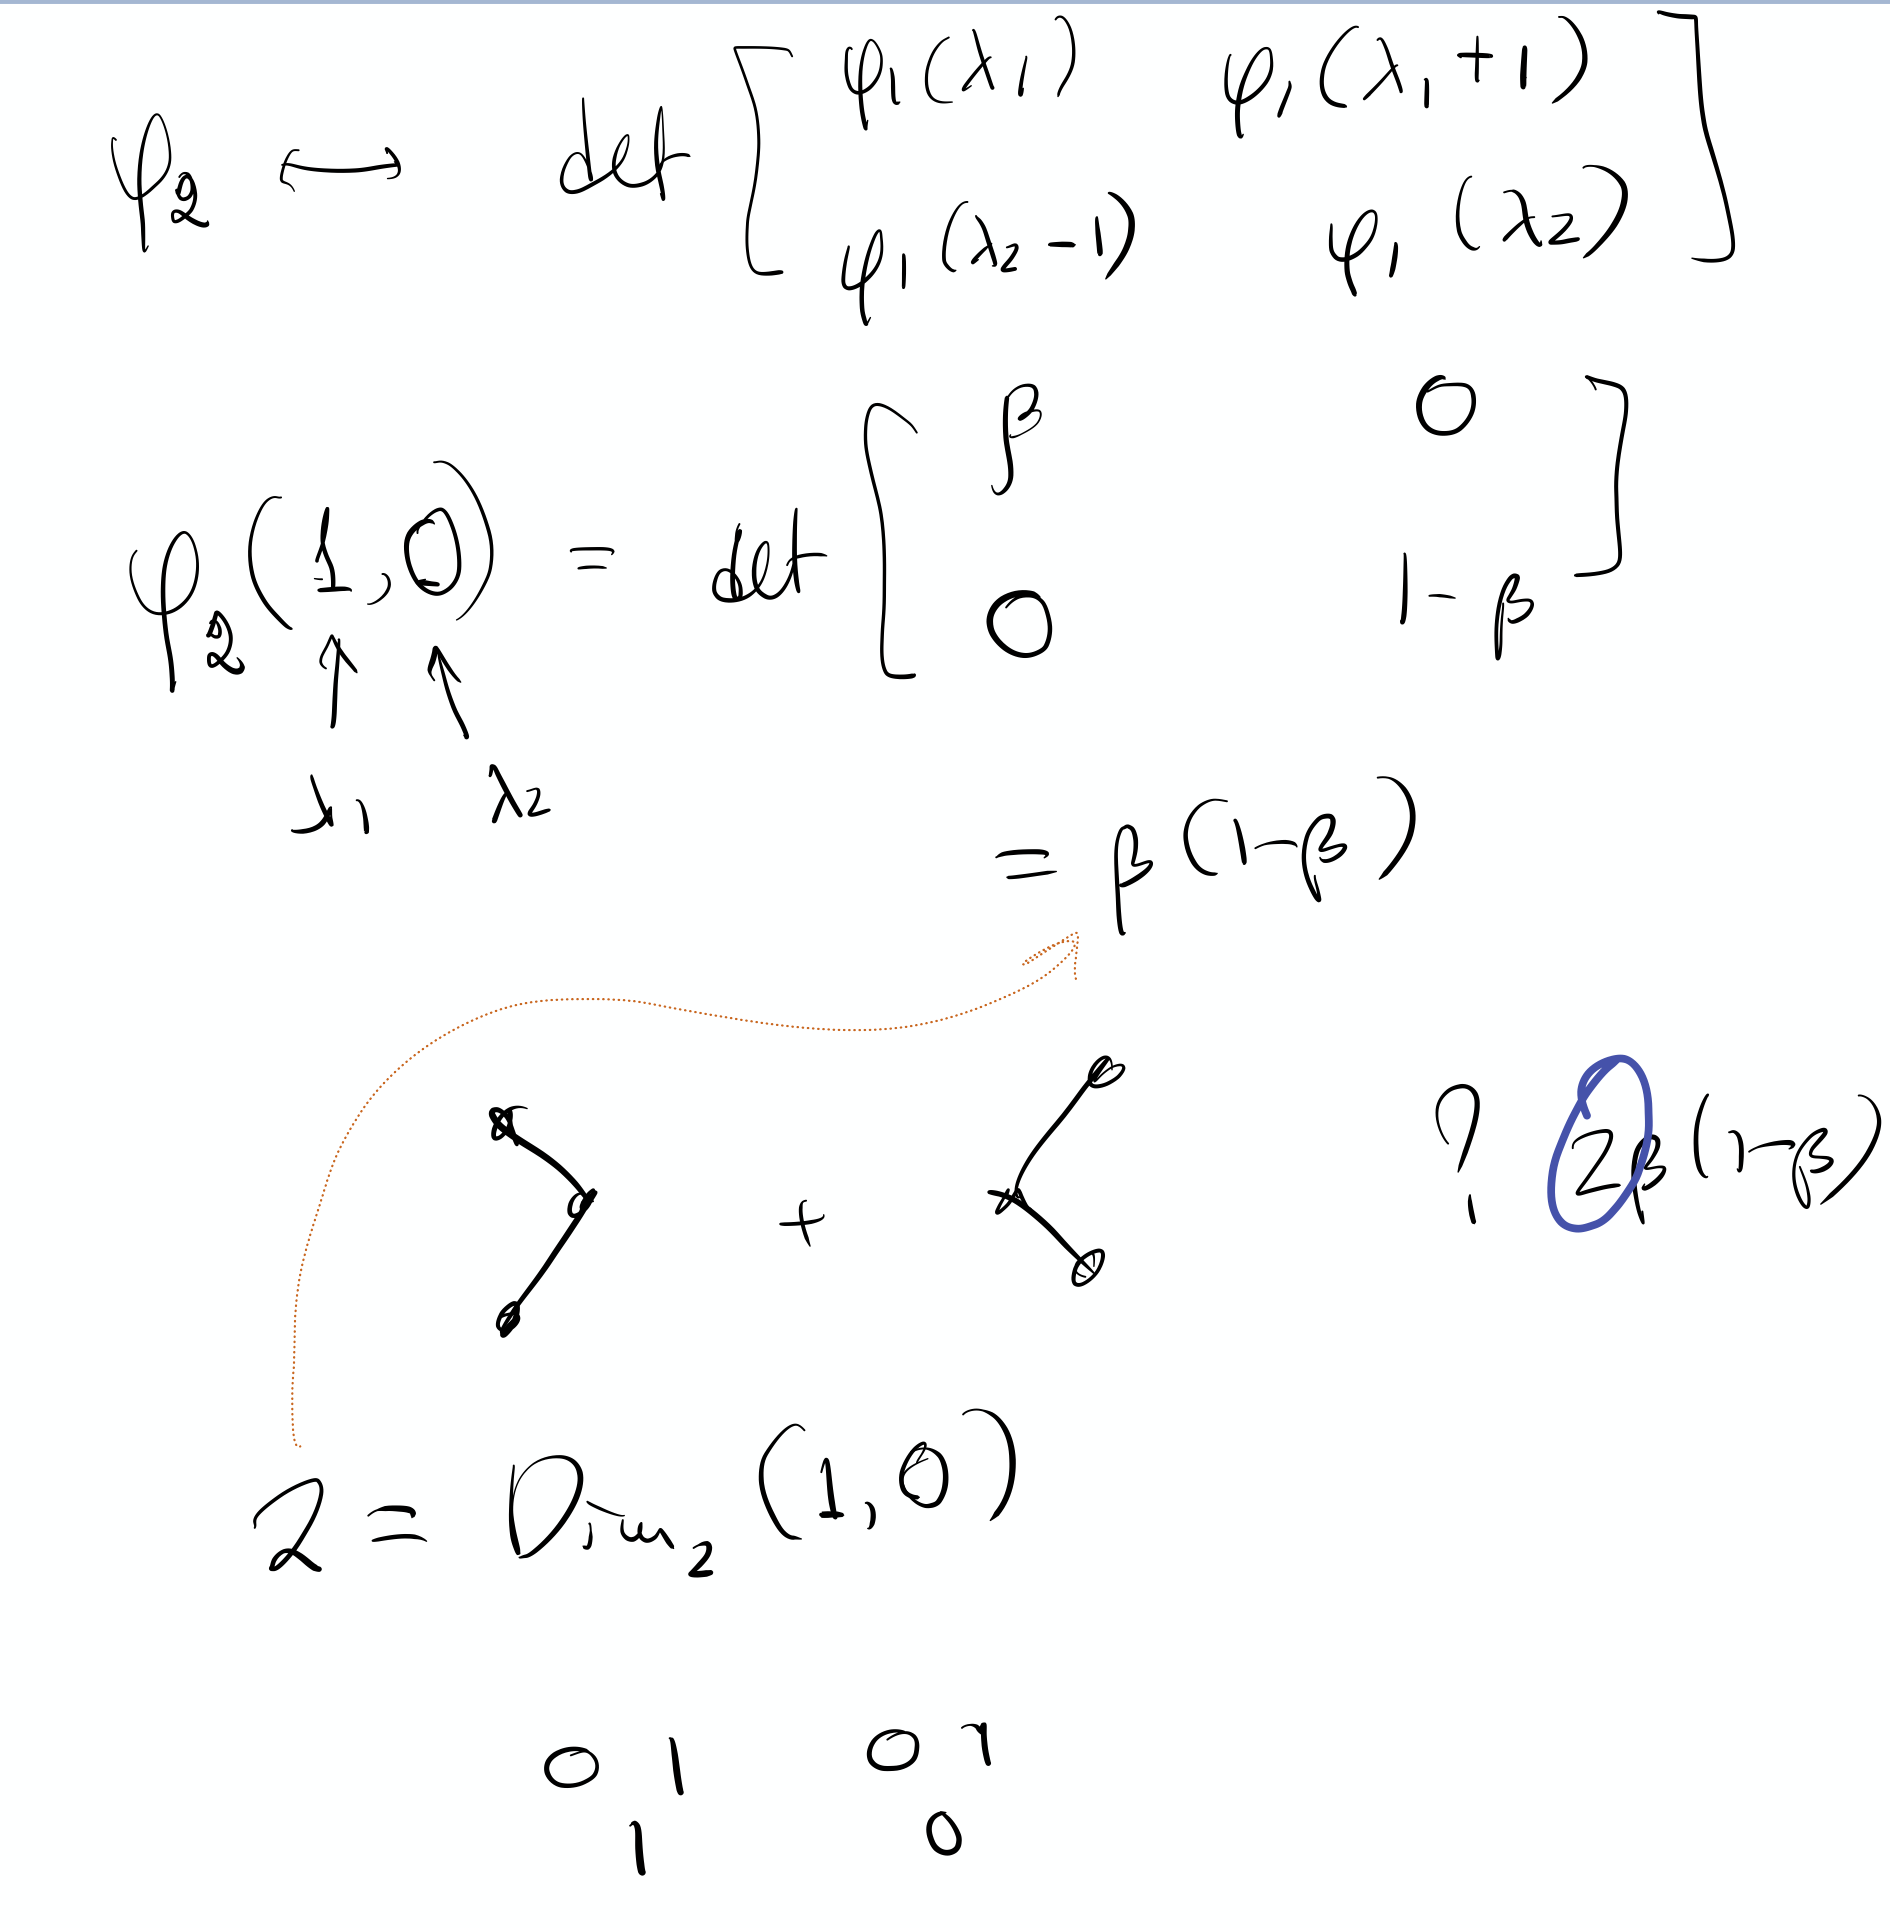 φ₂ ↔ det [ φ₁(λ₁) φ₁(λ₁+1)
φ₁(λ₂-1) φ₁(λ₂) ]
φ₂(1,0) = det [ β 0
0 1-β ]
λ₁ λ₂
= β(1-β)
+ ? 2β(1-β)
2 = Dim₂(1,0)
0 1 0 1
1 0